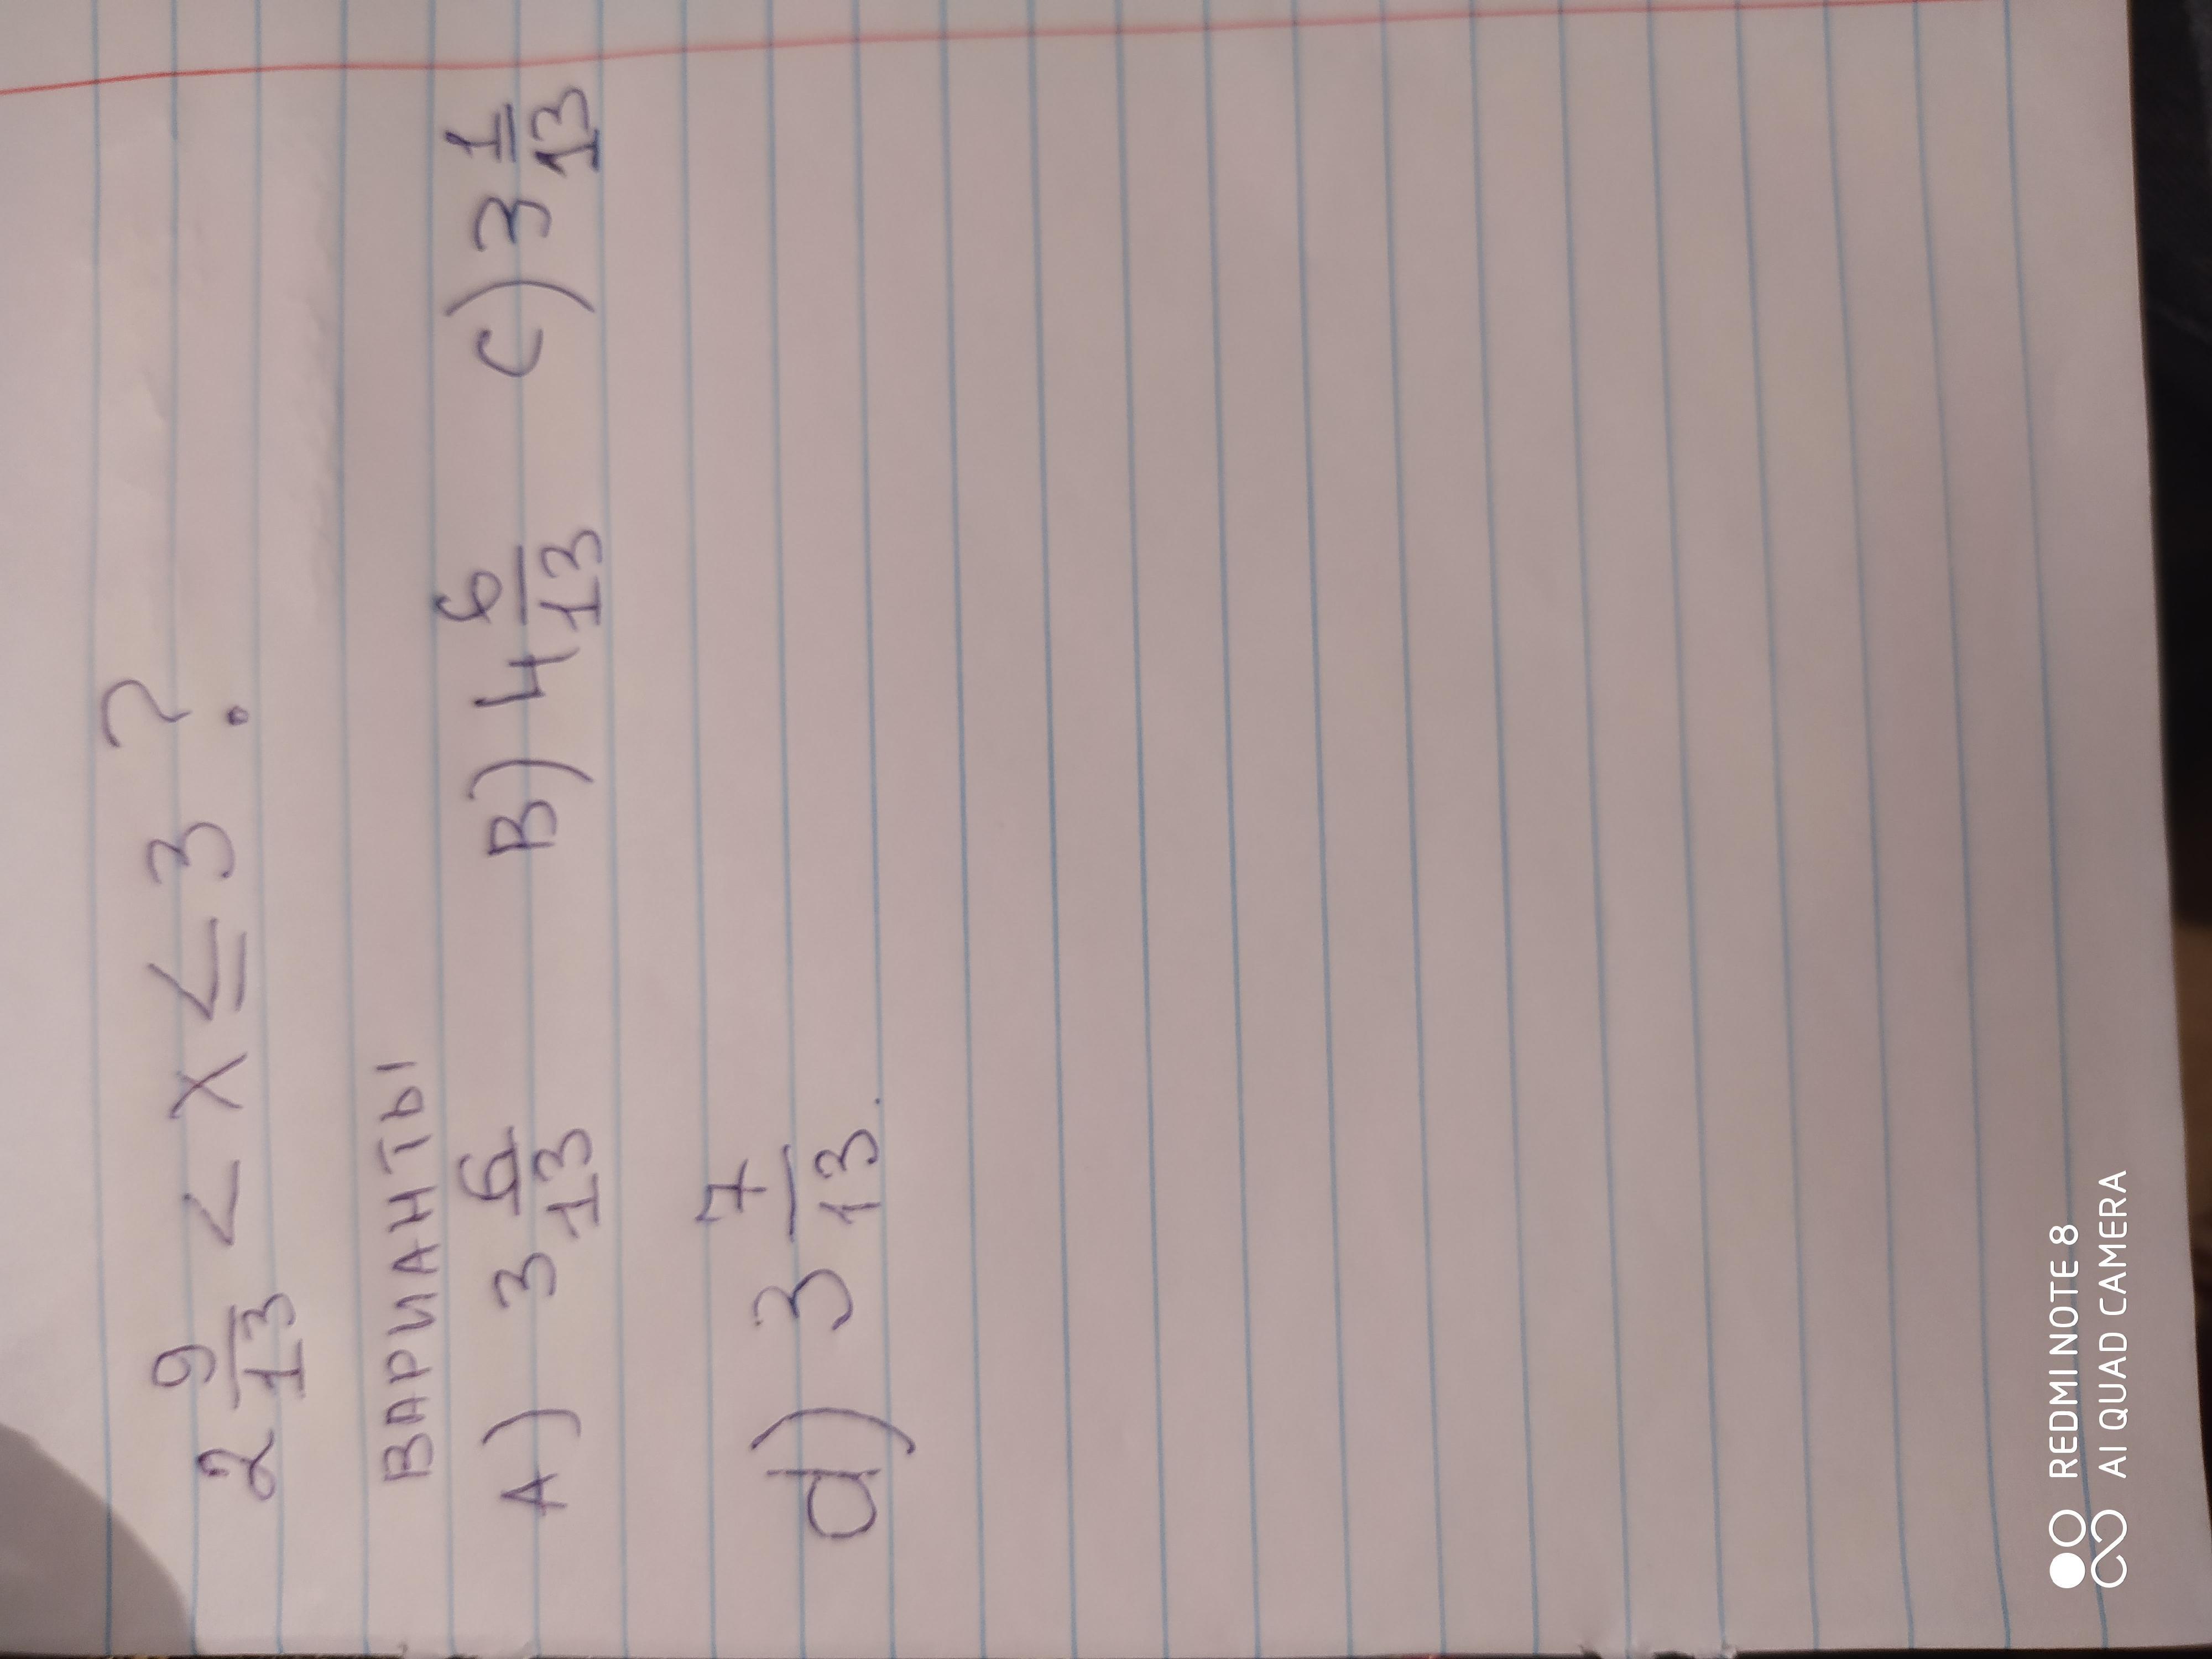 2 9/13 < x ≤ 3 ?
ВАРИАНТЫ
A) 3 6/13 B) 4 6/13 C) 3 1/13
d) 3 7/13.
REDMI NOTE 8
AI QUAD CAMERA